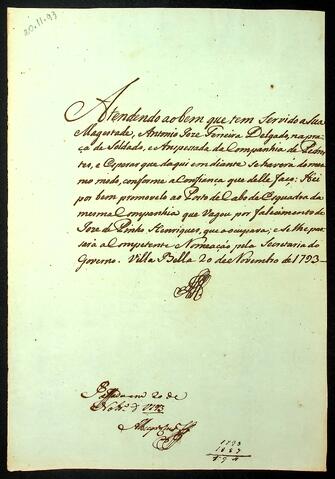 20.11.93
Attendendo ao bem que tem Servido a Sua
Magestade, Antonio Joze Ferreira Delgado, na pra
ça de Soldado, e Anspessada da Companhia de Pedes
tes, e Esperar que daqui em diante se haverá do mes
mo modo, conforme a Confiança que delle faço: Hei
por bem promovelo ao Posto de Cabo de Esquadra da
mesma Companhia que Vagou por falescimento de
Joze de Pinho Henriques, que o occupava; e se lhe pas
sará a Competente Nomeação pela Secretaria do
Governo. Villa Bella 20 de Novembro de 1793
Passada em 20 de
Nobr.º de 1793